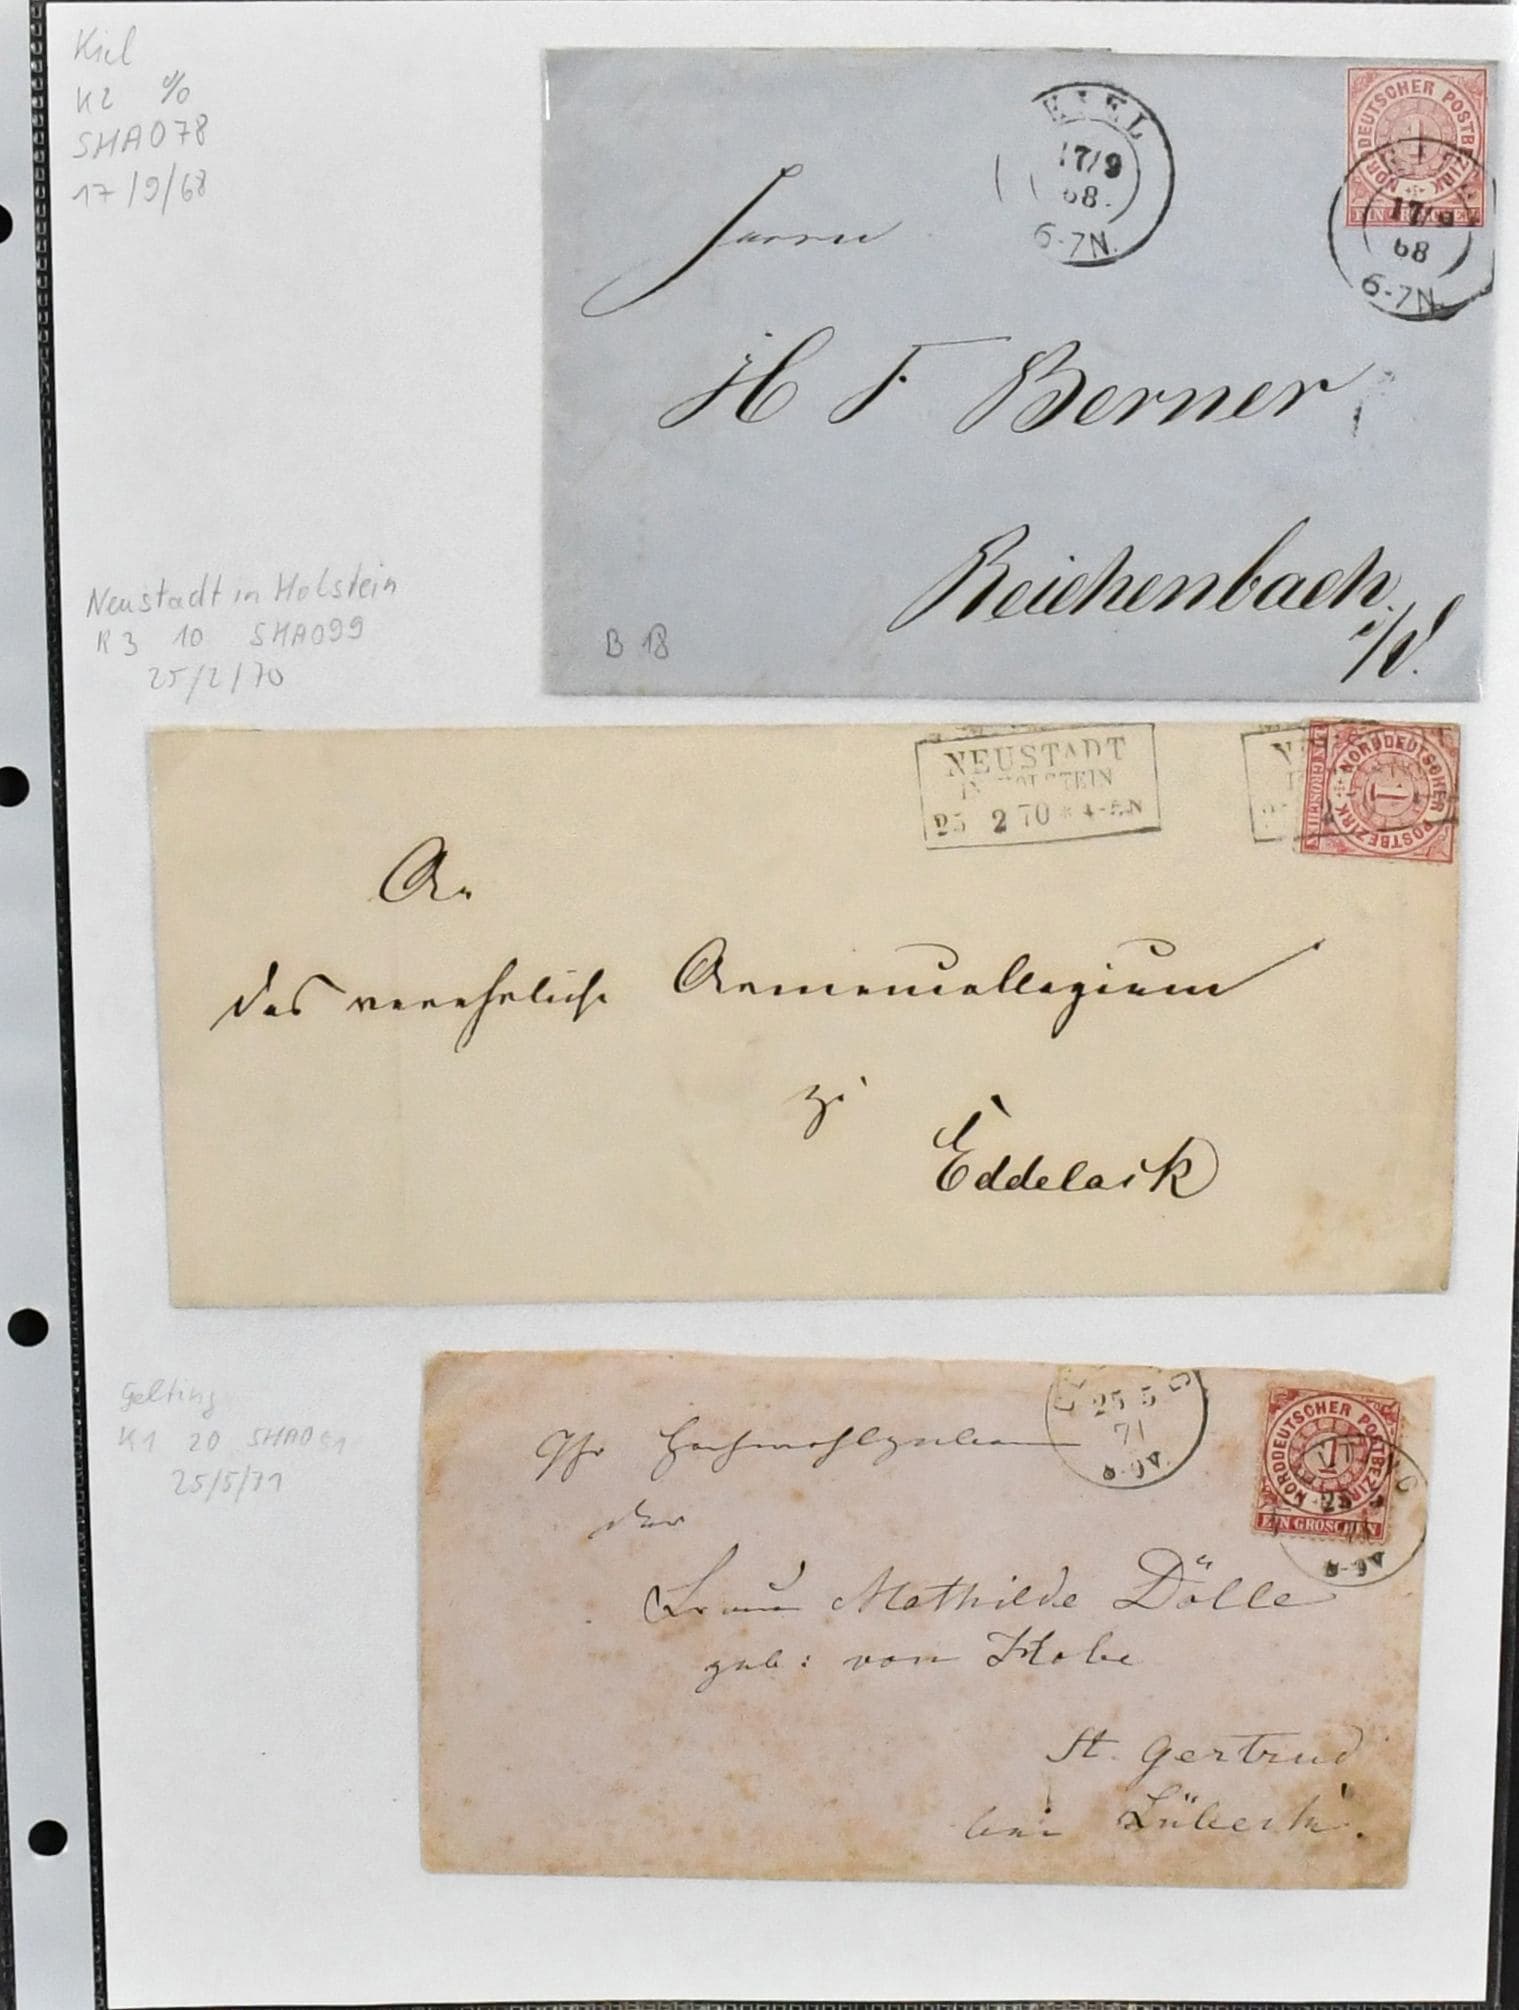 Kiel
K2 %
SHA078
17/9/68
KIEL
17/9
68.
6-7N.
NORDDEUTSCHER POSTBEZIRK
1
EIN GROSCHEN
KIEL
17/9
68
6-7N.
Herrn
H F Berner
Reichenbach
i/V.
B 18
Neustadt in Holstein
R3 10 SHA099
25/2/70
NEUSTADT
IN HOLSTEIN
25 2 70 * 4-5N
NORDDEUTSCHER POSTBEZIRK
1
EIN GROSCHEN
An
das verehrliche Armencollegium
zu
Eddelack
Gelting
K1 20
25/5/71
25 5
71
8-9V.
NORDDEUTSCHER POSTBEZIRK
1
EIN GROSCHEN
25 5
8-9V
Ihr Hochwohlgeboren
der
Frau Mathilde Dölle
geb: von Kobe
St. Gertrud
bei Lübeck.